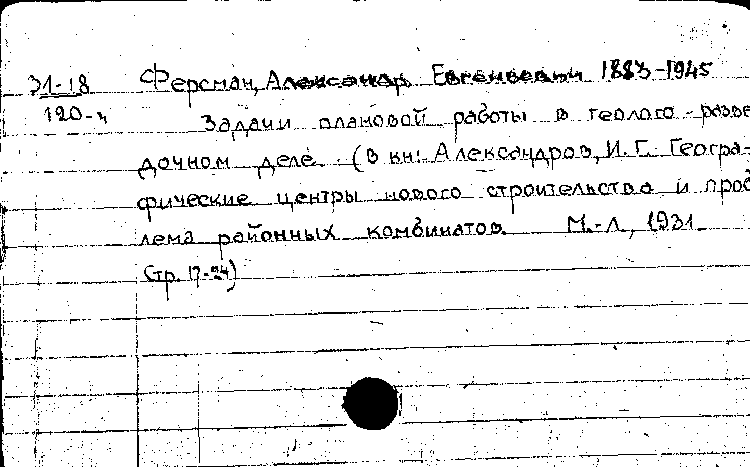 31-18 Ферсман, Александр Евгеньевич 1883-1945
120-ч Задачи плановой работы в геолого-разве
дочном деле. (В кн: Александров, И.Г. Геогра-
фические центры нового строительства и проб
лема районных комбинатов. М.-Л., 1931.
Стр. 17-24)